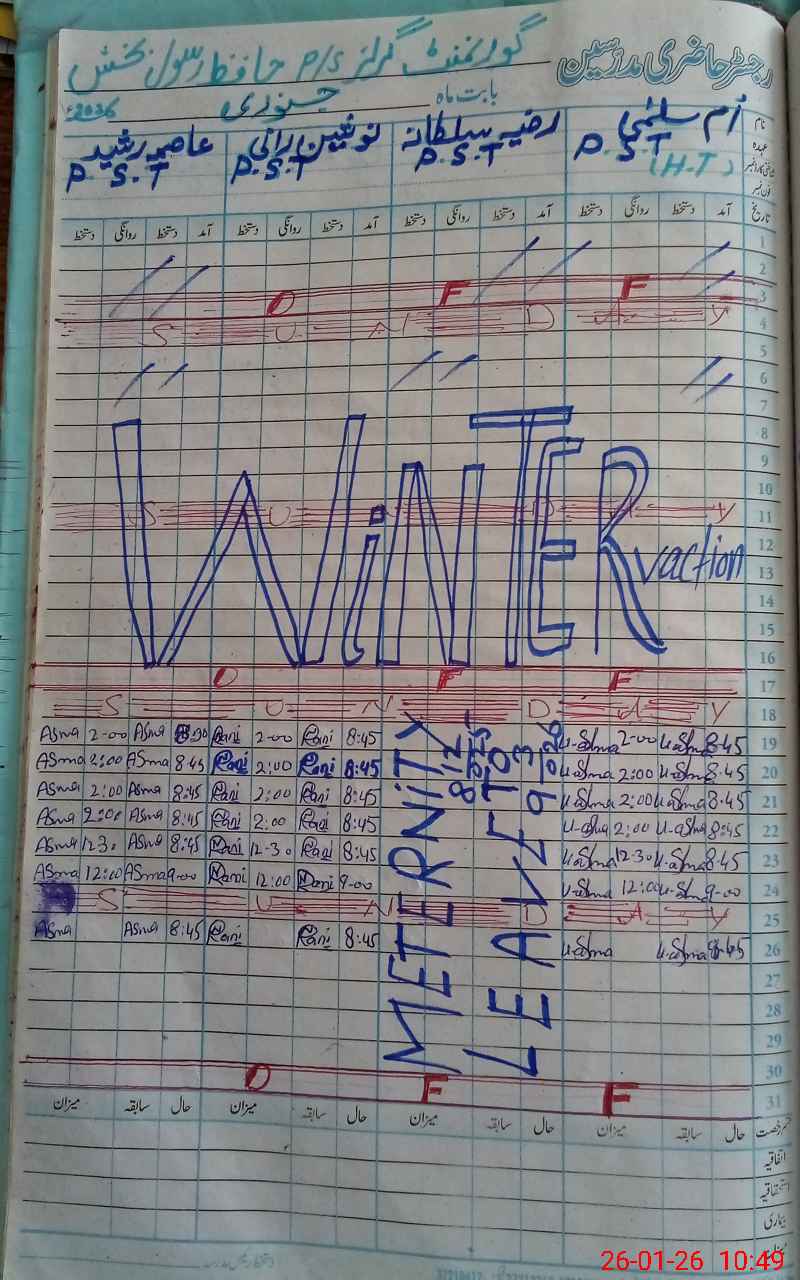 رجسٹر حاضری مدرسین
گورنمنٹ گرلز P/S حافظ رسول بخش
بابت ماہ جنوری 2026ء
نام اُم سلمٰی رضیہ سلطانہ نوشین رانی عاصمہ رشید
عہدہ P.S.T P.S.T P.S.T P.S.T
(H-T)
فون نمبر
تاریخ آمد دستخط روانگی دستخط آمد دستخط روانگی دستخط آمد دستخط روانگی دستخط آمد دستخط روانگی دستخط
1
2
3 O F F
4 S U N D A Y
5
6
7
8
9
10
11 S U N D A Y
12
13
14
15
16
WiNTER vaction
17 O F F
18 S U N D A Y
Asma 2-00 Asma 8:30 Rani 2-00 Rani 8:45 u-Salma 2-00 u-Salma 8-45 19
Asma 2:00 Asma 8:45 Rani 2:00 Rani 8:45 u-Salma 2:00 u-Salma 8:45 20
Asma 2:00 Asma 8:45 Rani 2:00 Rani 8:45 u-Salma 2:00 u-Salma 8:45 21
Asma 2:00 Asma 8:45 Rani 2:00 Rani 8:45 u-Salma 2:00 u-Salma 8:45 22
Asma 12-30 Asma 8:45 Rani 12-30 Rani 8:45 u-Salma 12-30 u-Salma 8-45 23
Asma 12:00 Asma 9-00 Rani 12:00 Rani 9-00 u-Salma 12:00 u-Salma 9-00 24
S U N D A Y 25
Asma Asma 8:45 Rani Rani 8:45 u-Salma u-Salma 8-45 26
METERNiTY
LEAVE
TO
27
28
29
30
31 O F F
حال سابقہ میزان حال سابقہ میزان حال سابقہ میزان حال سابقہ میزان
اتفاقیہ
استحقاقیہ
بیماری
26-01-26 10:49